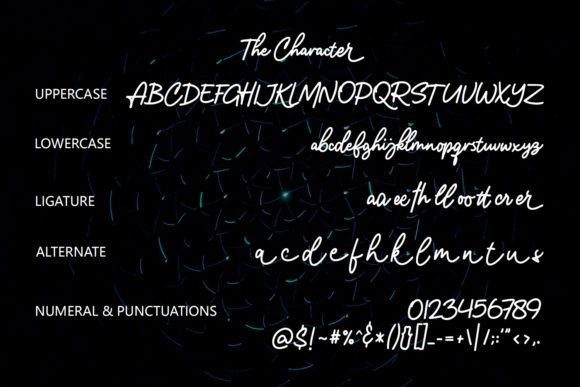 The Character
UPPERCASE ABCDEFGHIJKLMNOPQRSTUVWXYZ
LOWERCASE abcdefghijklmnopqrstuvwxyz
LIGATURE aa ee th ll oo tt cr er
ALTERNATE a c d e f h k l m n t u s
NUMERAL & PUNCTUATIONS 0123456789
@$!~#%^&*(){}[]_-=+\|/;:'"<>,.